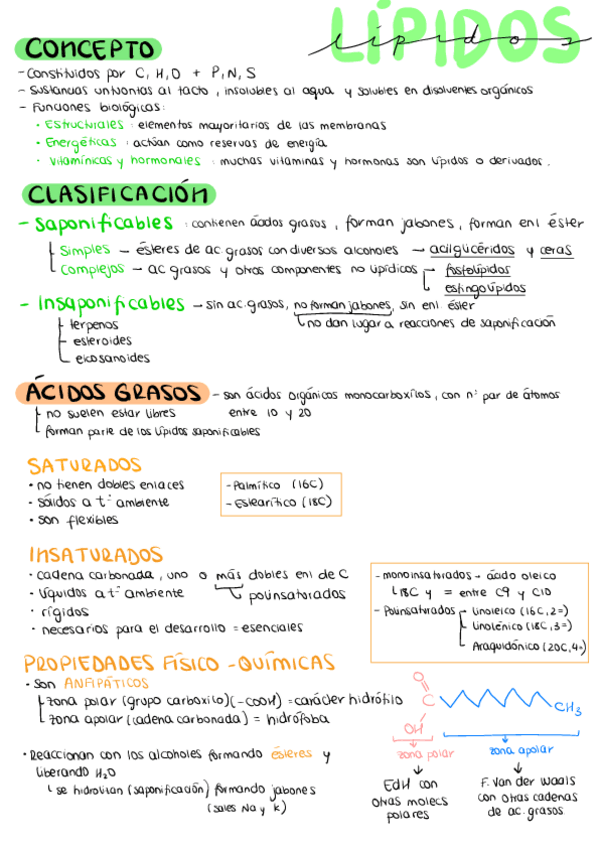 LÍPIDOS
lípidos
CONCEPTO
- Constituidos por C, H, O + P, N, S
- Sustancias untuontas al tacto, insolubles al agua y solubles en disolventes orgánicos
- Funciones biológicas:
· Estructurales: elementos mayoritarios de las membranas
· Energéticas: actúan como reservas de energía
· Vitamínicas y hormonales: muchas vitaminas y hormonas son lípidos o derivados.
CLASIFICACIÓN
- Saponificables: contienen ácidos grasos, forman jabones, forman enl éster
Simples - ésteres de ac. grasos con diversos alcoholes - acilglicéridos y ceras
Complejos - ac grasos y otros componentes no lipídicos - fosfolípidos
esfingolípidos
- Insaponificables - sin ac. grasos, no forman jabones, sin enl. éster
no dan lugar a reacciones de saponificación
terpenos
esteroides
eicosanoides
ÁCIDOS GRASOS - son ácidos orgánicos monocarboxílos, con nº par de átomos
entre 10 y 20
no suelen estar libres
forman parte de los lípidos saponificables
SATURADOS
· no tienen dobles enlaces
· sólidos a tª ambiente
· son flexibles
- Palmítico (16C)
- Estearítico (18C)
INSATURADOS
· cadena carbonada, uno o más dobles enl de C
poliinsaturados
· líquidos a tª ambiente
· rígidos
· necesarios para el desarrollo = esenciales
- monoinsaturados → ácido oleico
18C y = entre C9 y C10
- Poliinsaturados - linoleico (16C, 2=)
linolénico (18C, 3=)
Araquidónico (20C, 4=)
PROPIEDADES FÍSICO-QUÍMICAS
· Son ANFIPÁTICOS
zona polar (grupo carboxilo) (-COOH) = carácter hidrófilo
zona apolar (cadena carbonada) = hidrófoba
· Reaccionan con los alcoholes formando ésteres y
liberando H₂O
se hidrolitan (saponificación) formando jabones
(sales Na y K)
O
C
OH
CH₃
zona polar
zona apolar
EdH con
otras molecs
polares
F. Van der Waals
con otras cadenas
de ac. grasos